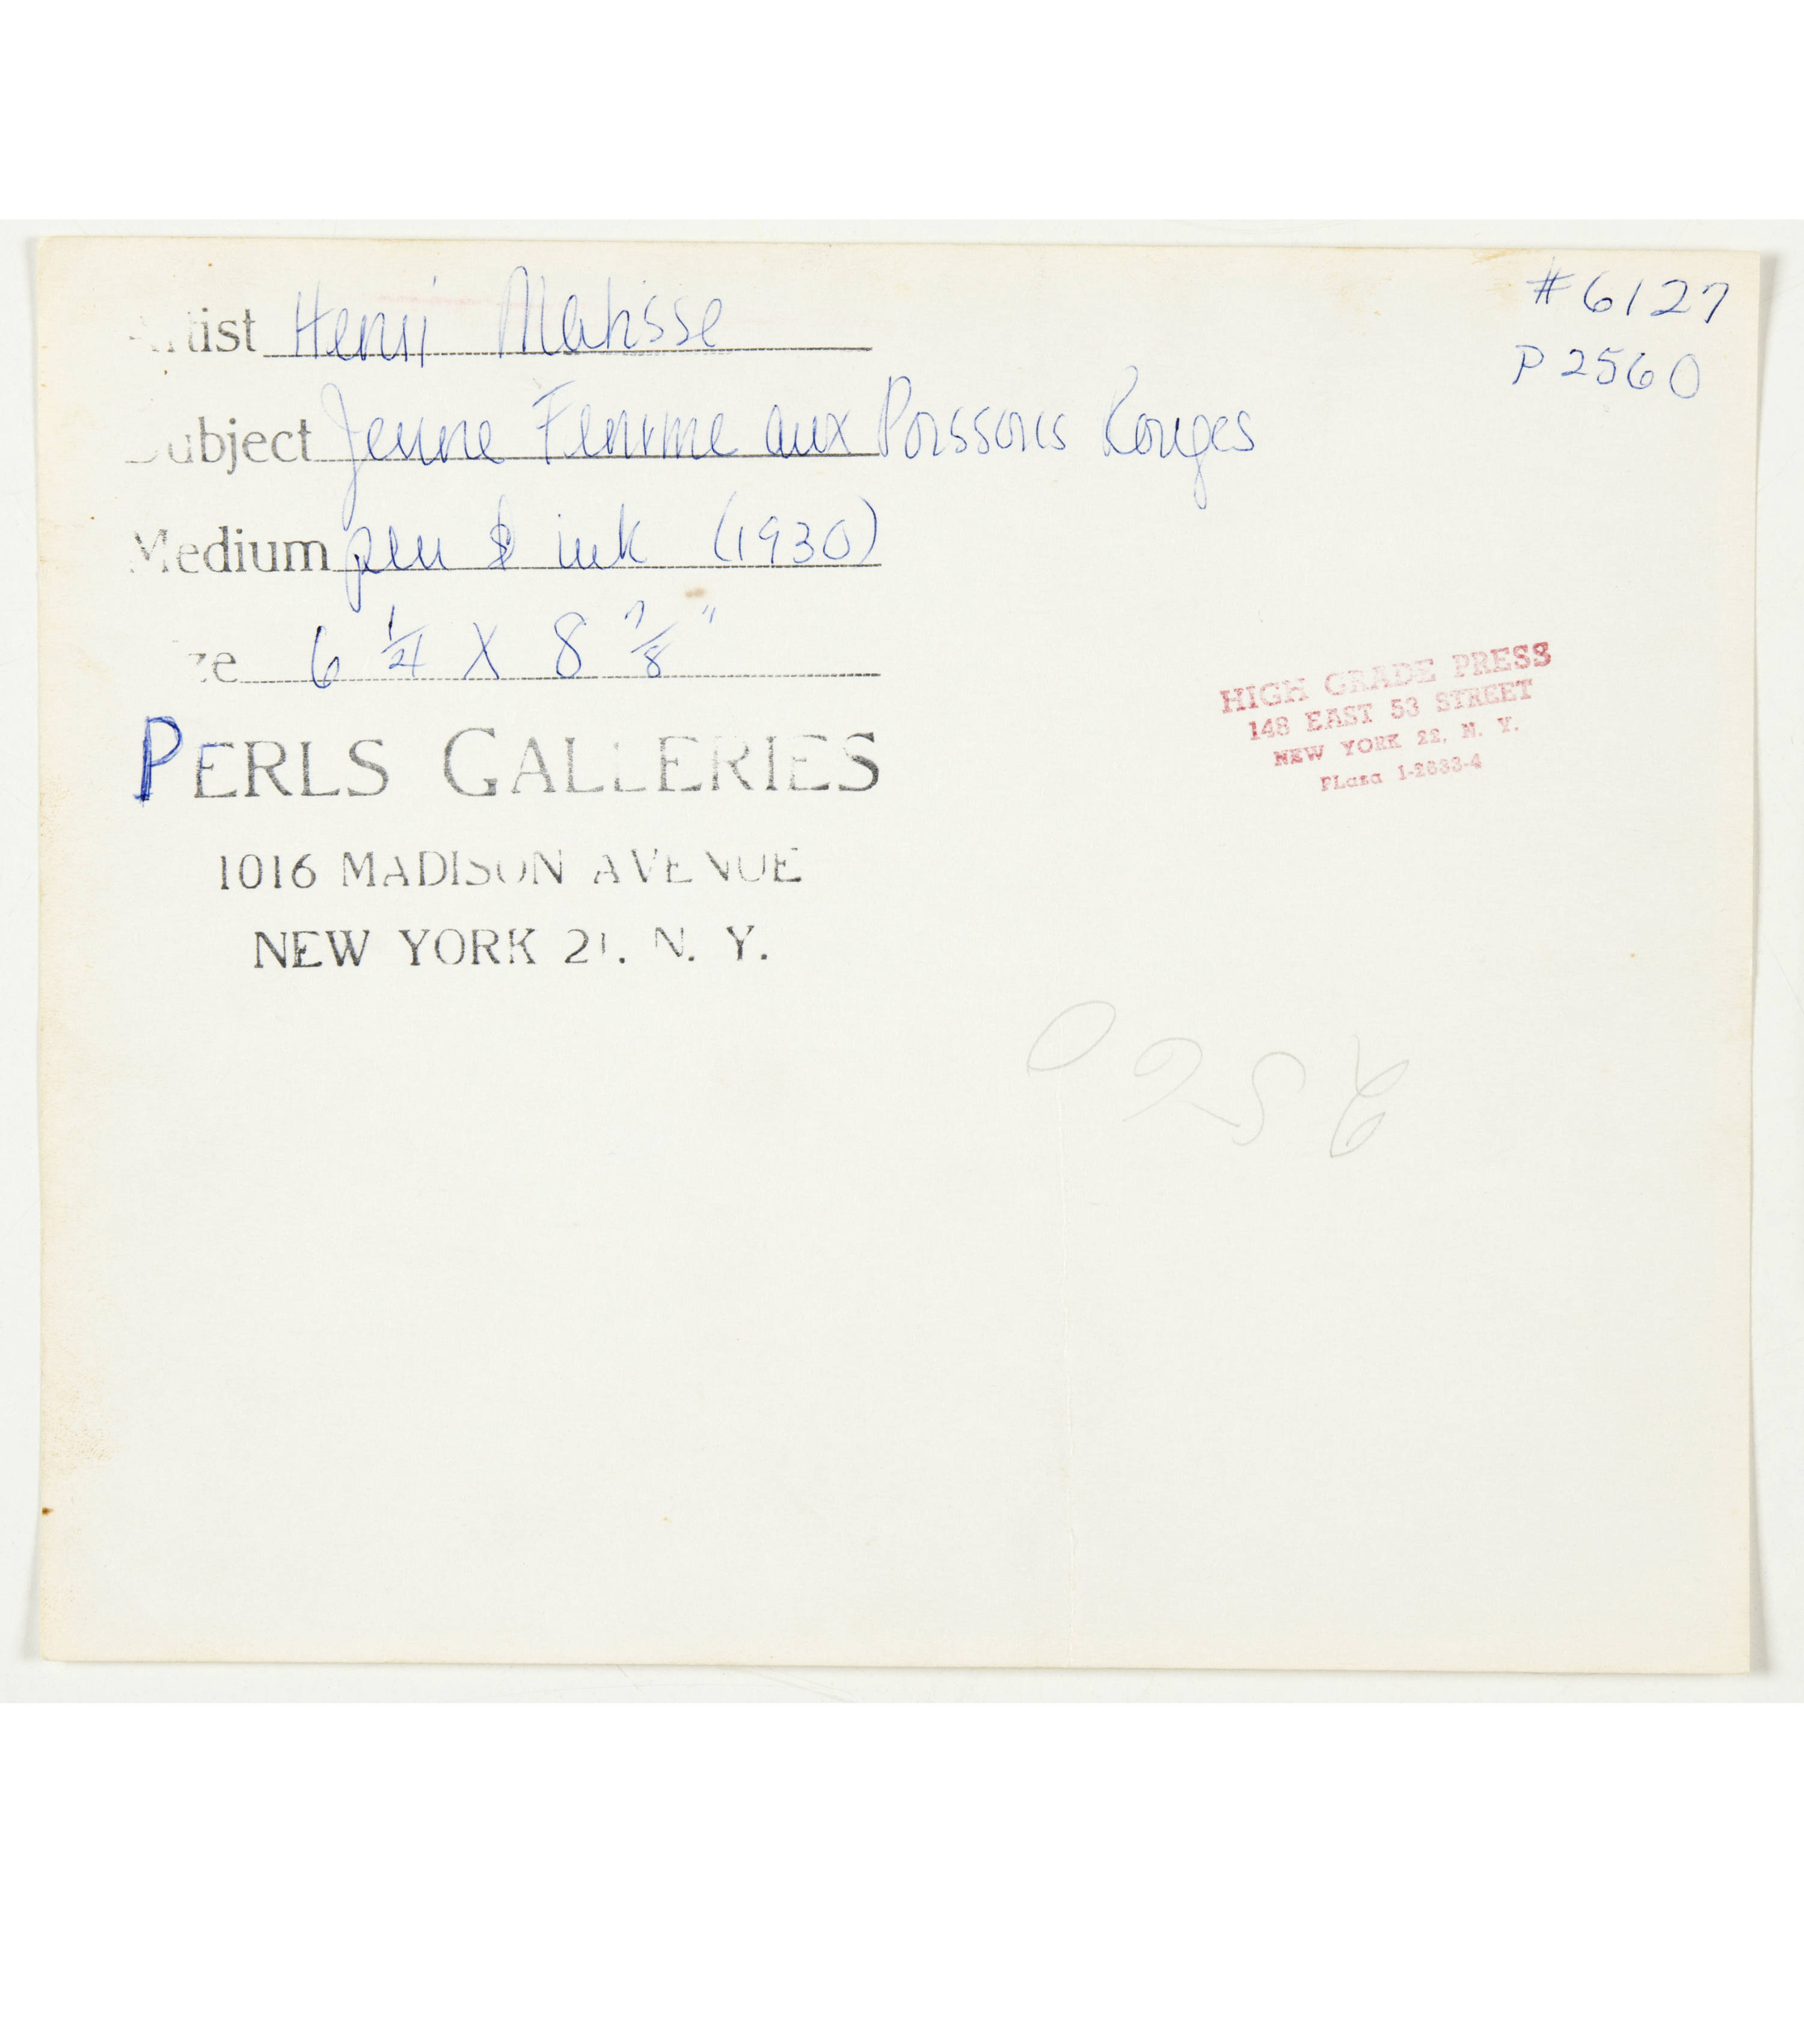 Artist Henri Matisse
#6127
P2560
Subject Jeune Femme aux Poissons Rouges
Medium pen & ink (1930)
Size 6 1/2 X 8 7/8"
PERLS GALLERIES
1016 MADISON AVENUE
NEW YORK 21. N. Y.
HIGH GRADE PRESS
148 EAST 53 STREET
NEW YORK 22, N. Y.
PLaza 1-2633-4